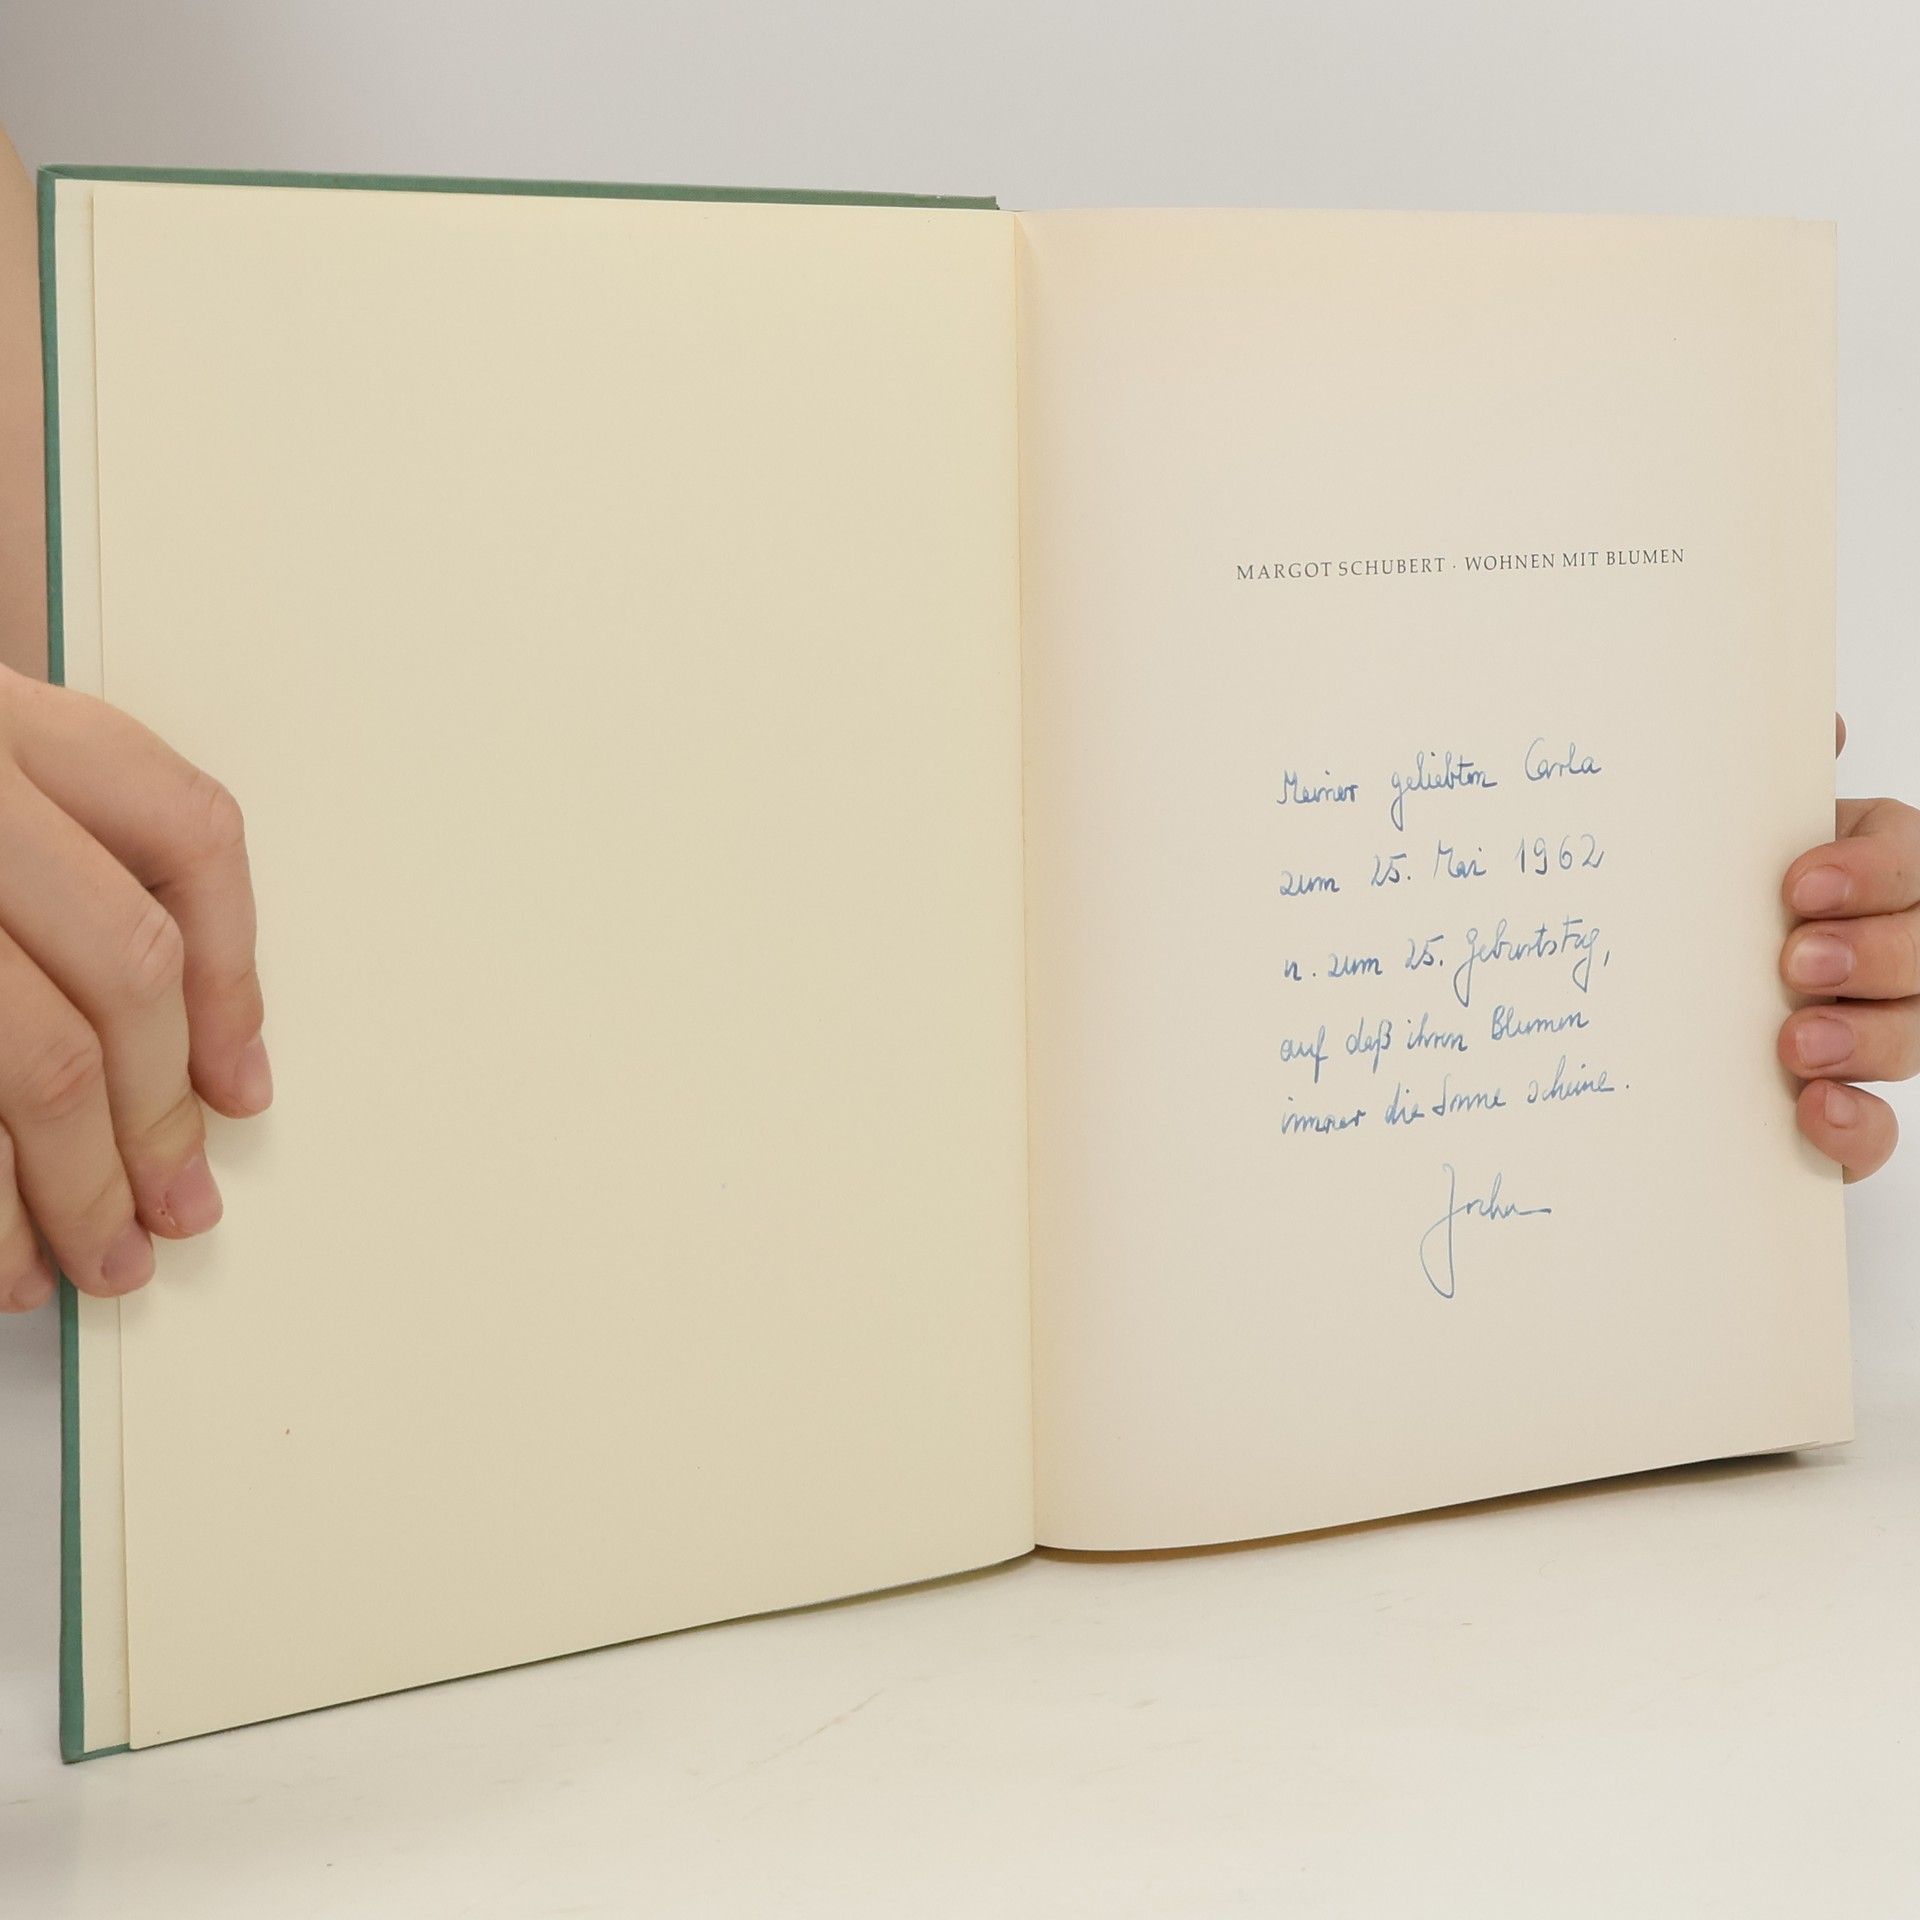 MARGOT SCHUBERT · WOHNEN MIT BLUMEN
Meiner geliebten Carla
zum 25. Mai 1962
u. zum 25. Geburtstag,
auf daß ihren Blumen
immer die Sonne scheine.
Jochen